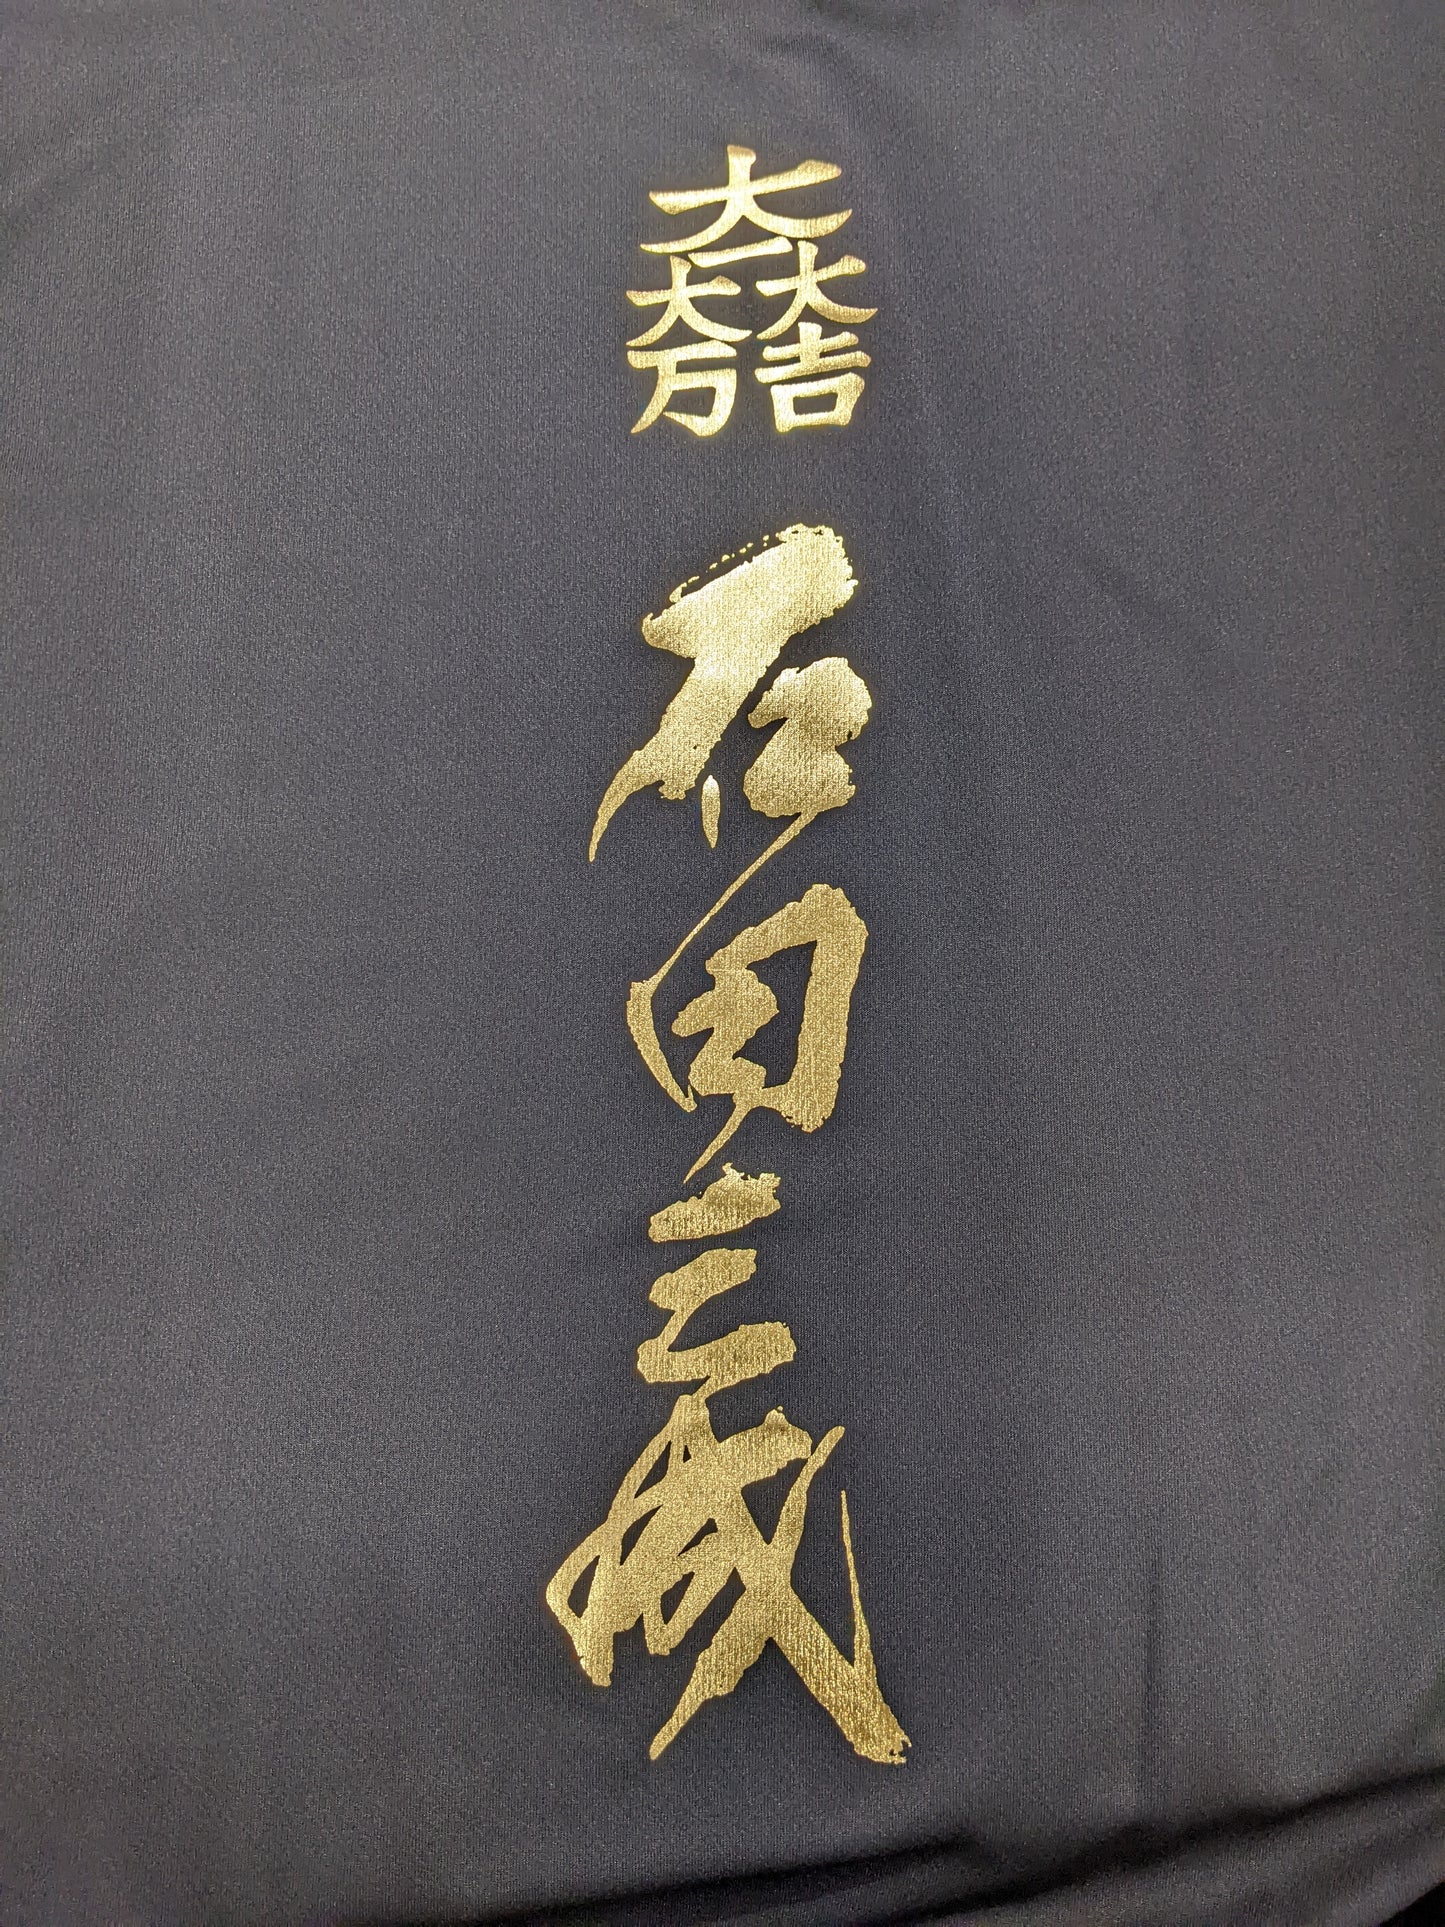 大一大万大吉
石田三成